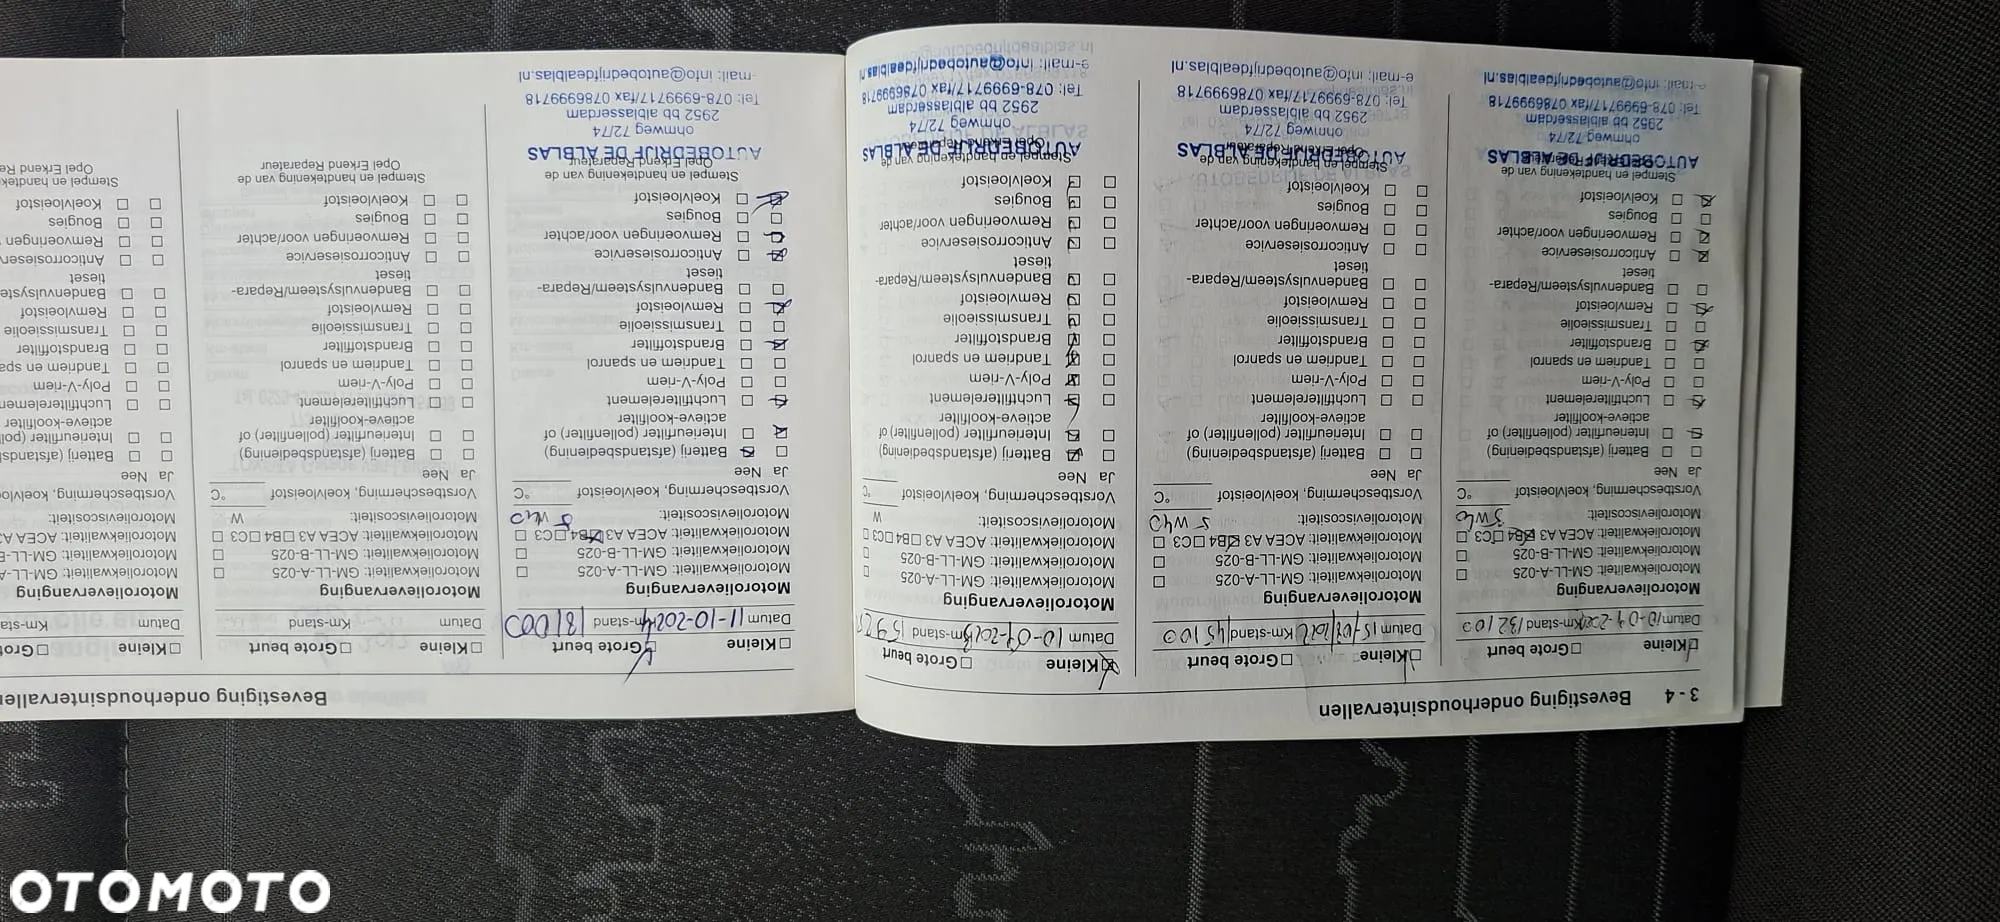 3 - 4 Bevestiging onderhoudsintervallen
Kleine Grote beurt
Datum Km-stand 132100
Motorolievervanging
Motoroliekwaliteit: GM-LL-A-025
Motoroliekwaliteit: GM-LL-B-025
Motoroliekwaliteit: ACEA A3 B4 C3
Motorolieviscositeit: 5W40
Vorstbescherming, koelvloeistof °C
Ja Nee
Batterij (afstandsbediening)
Interieurfilter (pollenfilter) of
actieve-koolfilter
Luchtfilterelement
Poly-V-riem
Tandriem en spanrol
Brandstoffilter
Transmissieolie
Remvloeistof
Bandenvulsysteem/Repara-
tieset
Anticorrosieservice
Remvoeringen voor/achter
Bougies
Koelvloeistof
Stempel en handtekening van de
AUTOBEDRIJF DE ALBLAS
ohmweg 72/74
2952 bb alblasserdam
Tel: 078-6999717/fax 0786999718
e-mail: info@autobedrijfdealblas.nl
Kleine Grote beurt
Datum Km-stand 145100
Motorolievervanging
Motoroliekwaliteit: GM-LL-A-025
Motoroliekwaliteit: GM-LL-B-025
Motoroliekwaliteit: ACEA A3 B4 C3
Motorolieviscositeit: 5W40
Vorstbescherming, koelvloeistof °C
Ja Nee
Batterij (afstandsbediening)
Interieurfilter (pollenfilter) of
actieve-koolfilter
Luchtfilterelement
Poly-V-riem
Tandriem en spanrol
Brandstoffilter
Transmissieolie
Remvloeistof
Bandenvulsysteem/Repara-
tieset
Anticorrosieservice
Remvoeringen voor/achter
Bougies
Koelvloeistof
Stempel en handtekening van de
Opel Erkend Reparateur
AUTOBEDRIJF DE ALBLAS
ohmweg 72/74
2952 bb alblasserdam
Tel: 078-6999717/fax 0786999718
e-mail: info@autobedrijfdealblas.nl
Kleine Grote beurt
Datum Km-stand
Motorolievervanging
Motoroliekwaliteit: GM-LL-A-025
Motoroliekwaliteit: GM-LL-B-025
Motoroliekwaliteit: ACEA A3 B4 C3
Motorolieviscositeit: W
Vorstbescherming, koelvloeistof °C
Ja Nee
Batterij (afstandsbediening)
Interieurfilter (pollenfilter) of
actieve-koolfilter
Luchtfilterelement
Poly-V-riem
Tandriem en spanrol
Brandstoffilter
Transmissieolie
Remvloeistof
Bandenvulsysteem/Repara-
tieset
Anticorrosieservice
Remvoeringen voor/achter
Bougies
Koelvloeistof
Stempel en handtekening van de
Opel Erkend Reparateur
AUTOBEDRIJF DE ALBLAS
ohmweg 72/74
2952 bb alblasserdam
Tel: 078-6999717/fax 0786999718
e-mail: info@autobedrijfdealblas.nl
Bevestiging onderhoudsintervallen
Kleine Grote beurt
Datum 11-10-2024 Km-stand 181000
Motorolievervanging
Motoroliekwaliteit: GM-LL-A-025
Motoroliekwaliteit: GM-LL-B-025
Motoroliekwaliteit: ACEA A3 B4 C3
Motorolieviscositeit: 5W40
Vorstbescherming, koelvloeistof °C
Ja Nee
Batterij (afstandsbediening)
Interieurfilter (pollenfilter) of
actieve-koolfilter
Luchtfilterelement
Poly-V-riem
Tandriem en spanrol
Brandstoffilter
Transmissieolie
Remvloeistof
Bandenvulsysteem/Repara-
tieset
Anticorrosieservice
Remvoeringen voor/achter
Bougies
Koelvloeistof
Stempel en handtekening van de
Opel Erkend Reparateur
AUTOBEDRIJF DE ALBLAS
ohmweg 72/74
2952 bb alblasserdam
Tel: 078-6999717/fax 0786999718
e-mail: info@autobedrijfdealblas.nl
Kleine Grote beurt
Datum Km-stand
Motorolievervanging
Motoroliekwaliteit: GM-LL-A-025
Motoroliekwaliteit: GM-LL-B-025
Motoroliekwaliteit: ACEA A3 B4 C3
Motorolieviscositeit: W
Vorstbescherming, koelvloeistof °C
Ja Nee
Batterij (afstandsbediening)
Interieurfilter (pollenfilter) of
actieve-koolfilter
Luchtfilterelement
Poly-V-riem
Tandriem en spanrol
Brandstoffilter
Transmissieolie
Remvloeistof
Bandenvulsysteem/Repara-
tieset
Anticorrosieservice
Remvoeringen voor/achter
Bougies
Koelvloeistof
Stempel en handtekening van de
Opel Erkend Reparateur
Kleine Gro
Datum Km-sta
Motorolievervanging
Motoroliekwaliteit: GM-LL-A
Motoroliekwaliteit: GM-LL-B
Motoroliekwaliteit: ACEA A3
Motorolieviscositeit:
Vorstbescherming, koelvlo
Ja Nee
Batterij (afstands
Interieurfilter (poll
actieve-koolfilter
Luchtfilterelemen
Poly-V-riem
Tandriem en spa
Brandstoffilter
Transmissieolie
Remvloeistof
Bandenvulsyste
tieset
Anticorrosieserv
Remvoeringen v
Bougies
Koelvloeistof
Stempel en handteke
Opel Erkend Re
OTOMOTO